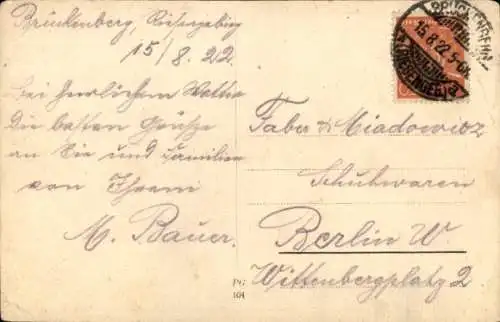 Brückenberg, Riesengebirg
15/8.22.
Bei herrlichem Wetter
Die besten Grüße
an Sie und Familie
von Ihrem
M. Bauer.
BRÜCKENBERG
15.8.22.5-6N.
Faber & Miadowicz
Schuhwaren
Berlin W.
Wittenbergplatz 2
PG
104